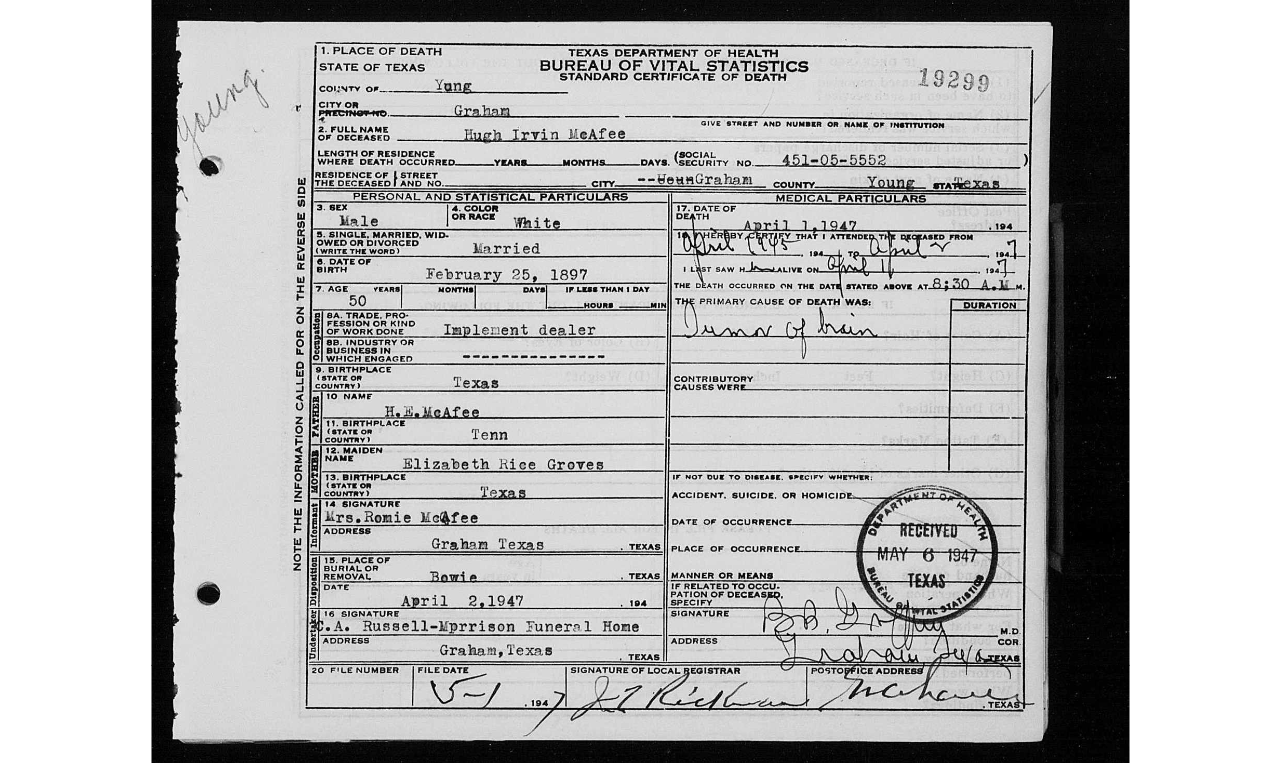 young.
TEXAS DEPARTMENT OF HEALTH
BUREAU OF VITAL STATISTICS
STANDARD CERTIFICATE OF DEATH
19299
1. PLACE OF DEATH
STATE OF TEXAS
COUNTY OF Yung
CITY OR
PRECINCT NO. Graham
GIVE STREET AND NUMBER OR NAME OF INSTITUTION
2. FULL NAME
OF DECEASED Hugh Irvin McAfee
LENGTH OF RESIDENCE
WHERE DEATH OCCURRED YEARS MONTHS DAYS. (SOCIAL SECURITY NO. 451-05-5552 )
RESIDENCE OF THE DECEASED STREET AND NO. CITY Graham COUNTY Young STATE Texas
PERSONAL AND STATISTICAL PARTICULARS
3. SEX
Male
4. COLOR
OR RACE White
5. SINGLE, MARRIED, WID-
OWED OR DIVORCED
(WRITE THE WORD) Married
6. DATE OF
BIRTH February 25, 1897
7. AGE YEARS MONTHS DAYS IF LESS THAN 1 DAY
50 HOURS MIN
Occupation
8A. TRADE, PRO-
FESSION OR KIND
OF WORK DONE Implement dealer
8B. INDUSTRY OR
BUSINESS IN
WHICH ENGAGED ---------------
9. BIRTHPLACE
(STATE OR
COUNTRY) Texas
FATHER
10 NAME
H.E.McAfee
11. BIRTHPLACE
(STATE OR
COUNTRY) Tenn
MOTHER
12. MAIDEN
NAME Elizabeth Rice Groves
13. BIRTHPLACE
(STATE OR
COUNTRY) Texas
Informant
14 SIGNATURE
Mrs.Romie McAfee
ADDRESS
Graham Texas , TEXAS
Disposition
15. PLACE OF
BURIAL OR
REMOVAL Bowie , TEXAS
DATE
April 2,1947 , 194
Undertaker
16 SIGNATURE
C.A. Russell-Mprrison Funeral Home
ADDRESS
Graham,Texas , TEXAS
MEDICAL PARTICULARS
17. DATE OF
DEATH April 1,1947 , 194
18. I HEREBY CERTIFY THAT I ATTENDED THE DECEASED FROM
April 1945 , 194 TO April 2 , 1947
I LAST SAW H ALIVE ON April 1 , 1947
THE DEATH OCCURRED ON THE DATE STATED ABOVE AT 8:30 A.M M.
THE PRIMARY CAUSE OF DEATH WAS: DURATION
Tumor of brain
CONTRIBUTORY
CAUSES WERE
IF NOT DUE TO DISEASE, SPECIFY WHETHER:
ACCIDENT, SUICIDE, OR HOMICIDE
DATE OF OCCURRENCE
PLACE OF OCCURRENCE
MANNER OR MEANS
IF RELATED TO OCCU-
PATION OF DECEASED,
SPECIFY
SIGNATURE M.D.
COR.
ADDRESS Graham Texas TEXAS
DEPARTMENT OF HEALTH
RECEIVED
MAY 6 1947
TEXAS
BUREAU OF VITAL STATISTICS
20 FILE NUMBER
FILE DATE
5-1 , 1947
SIGNATURE OF LOCAL REGISTRAR
POSTOFFICE ADDRESS
Graham , TEXAS
NOTE THE INFORMATION CALLED FOR ON THE REVERSE SIDE